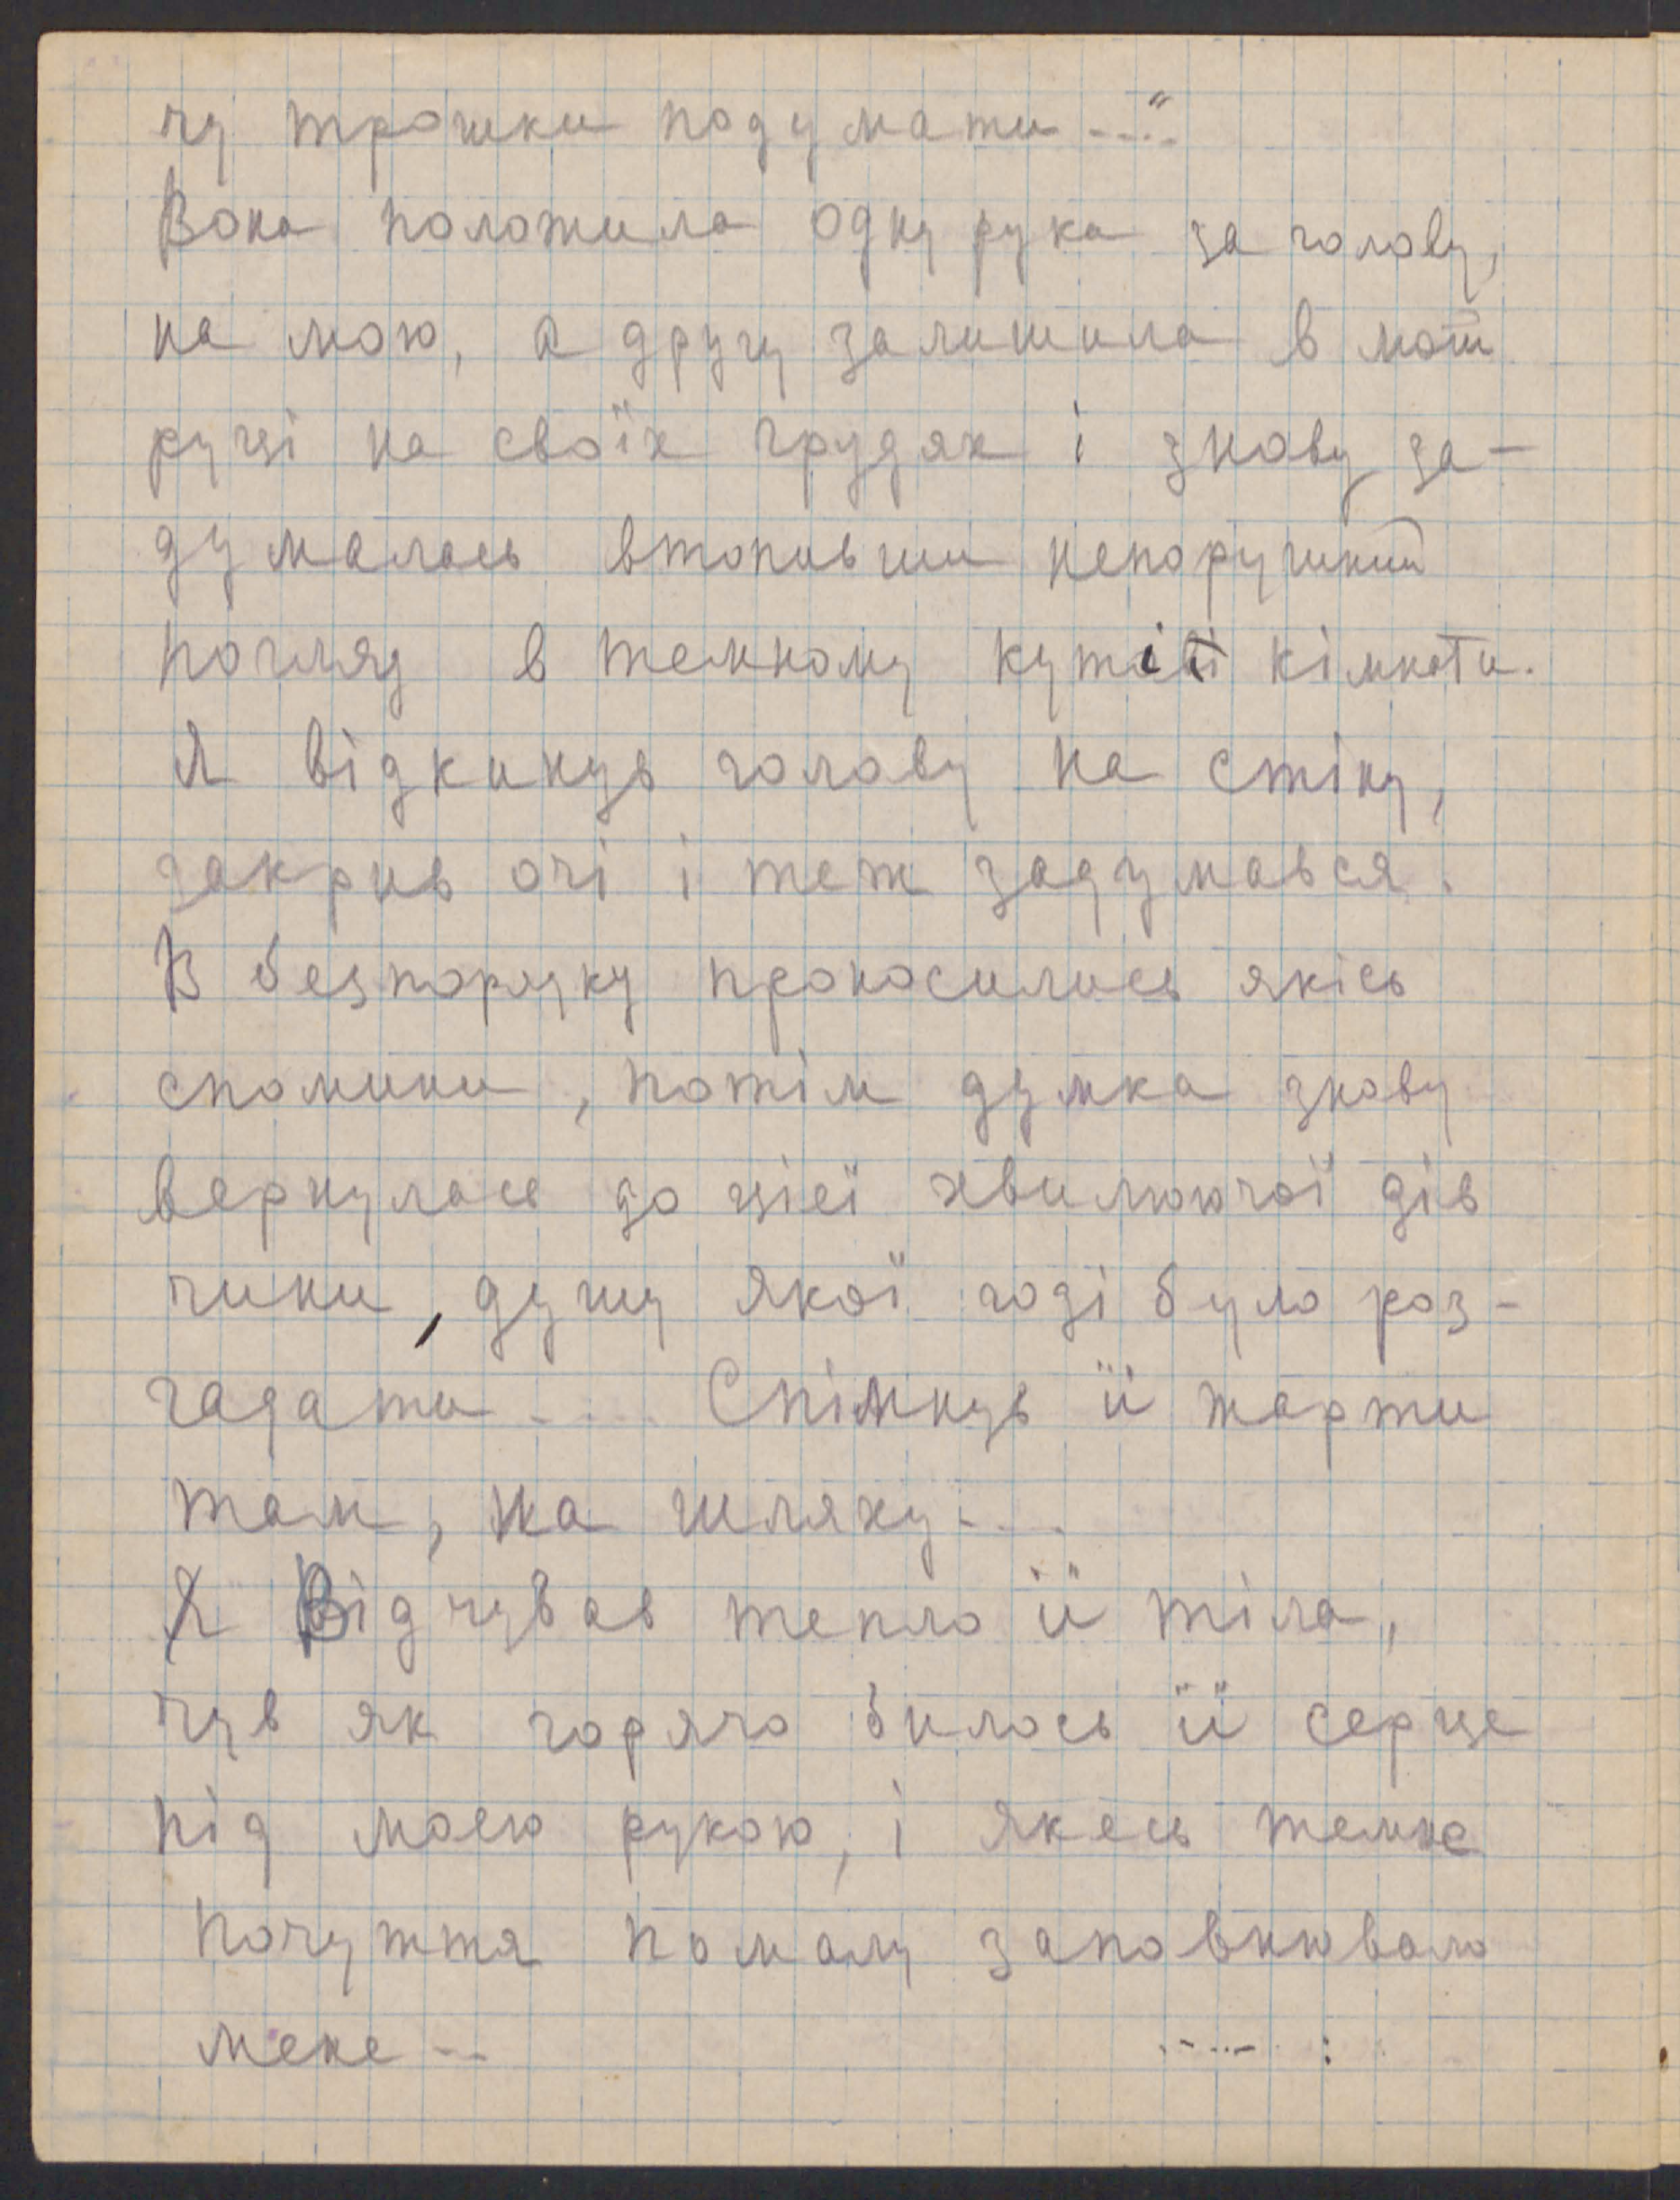 чу трошки подумати....“
Вона положила одну рука за голову,
на мою, а другу залишила в моїй
руці на своїх грудях і знову за-
думалась втопивши непорушний
погляд в темному куті кімнати.
Я відкинув голову на стіну,
закрив очі і теж задумався.
В безпорядку проносились якісь
спомини, потім думка знову
вернулась до цієї хвилюючої дів
чини, душу якої годі було роз-
гадати .... Спімнув її жарти
там, на шляху....
Я Відчував тепло її тіла,
чув як горячо билось її серце
під моєю рукою, і якесь темне
почуття помалу заповнювало
мене --